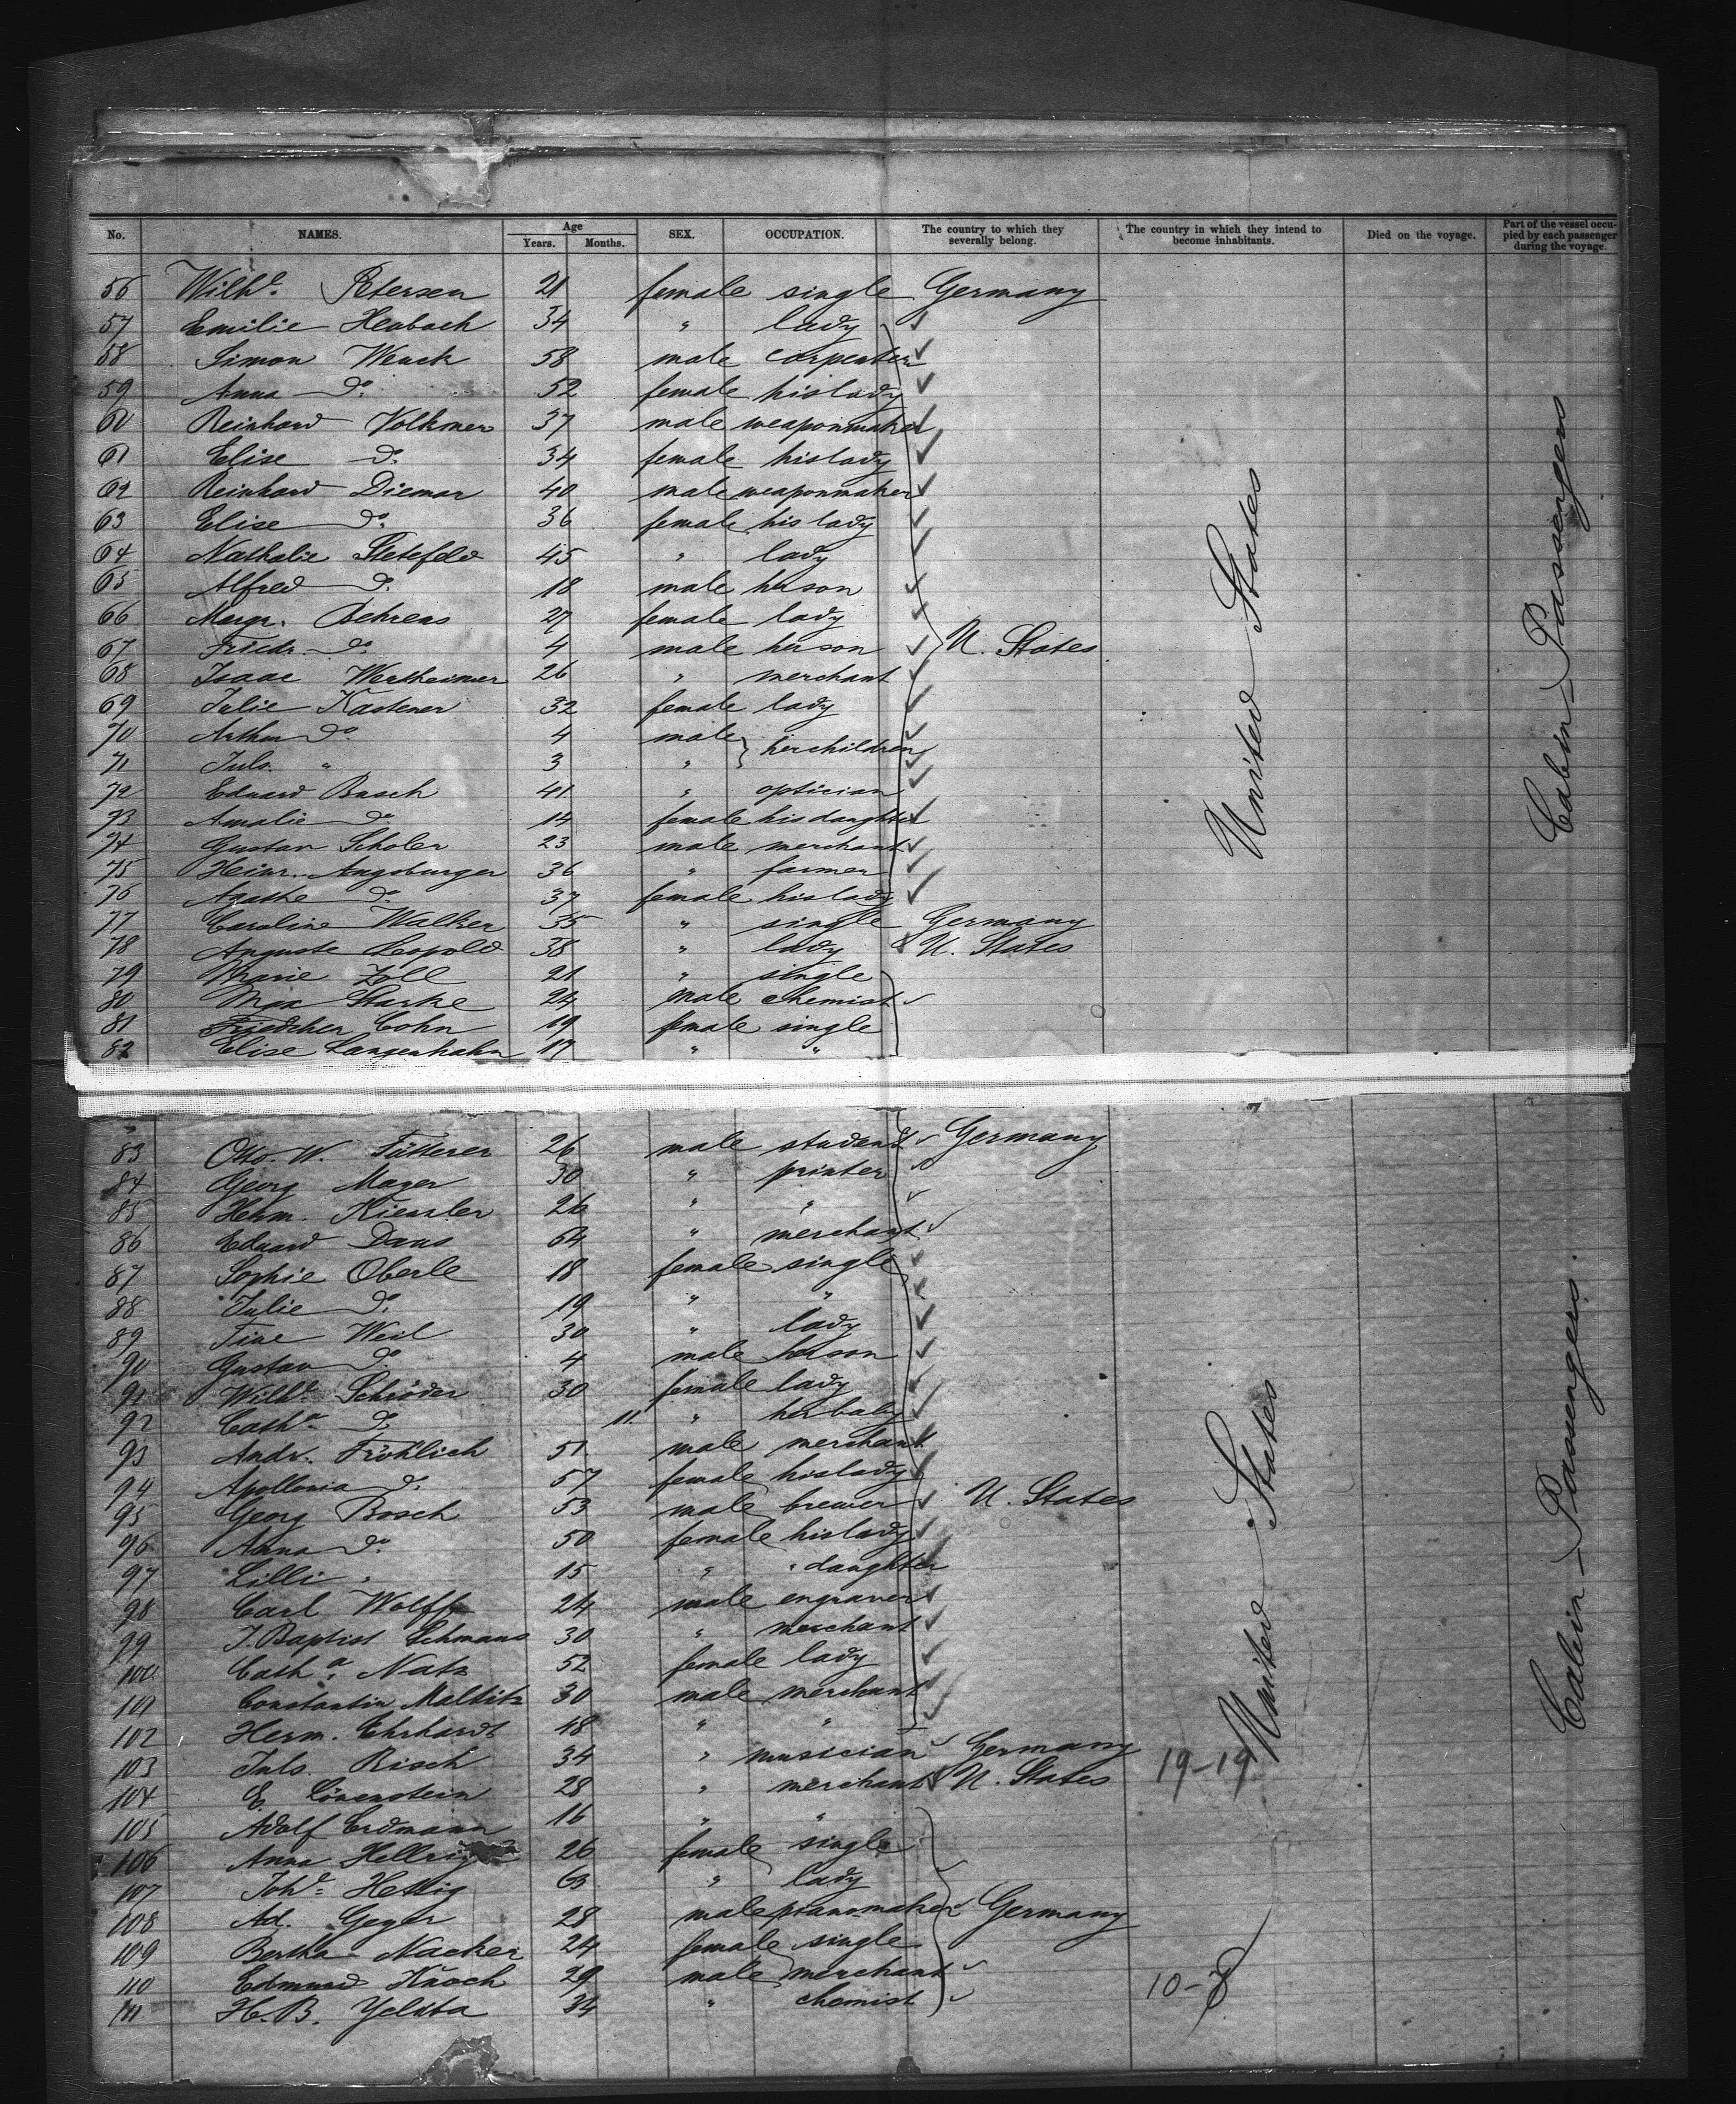 No. NAMES. Age Years. Months. SEX. OCCUPATION. The country to which they severally belong. The country in which they intend to become inhabitants. Died on the voyage. Part of the vessel occupied by each passenger during the voyage.
56 Wilh.e Petersen 21 female single Germany
57 Emilie Heabach 34 " lady
58 Simon Wenck 58 male carpenter
59 Anna do. 52 female his lady
60 Reinhard Volkmer 37 male weaponmaker
61 Elise do. 34 female his lady
62 Reinhard Diemar 40 male weaponmaker
63 Elise do. 36 female his lady
64 Nathalie Stetefeld 45 " lady
65 Alfred do. 18 male her son
66 Margr. Behrens 27 female lady
67 Friedr. do. 4 male her son U. States
68 Isaac Wertheimer 26 " merchant
69 Julie Kastener 32 female lady
70 Arthur do. 4 male her children
71 Juls. " 3 "
72 Eduard Busch 41 " optician
73 Amalie do. 14 female his daughter
74 Gustav Scholer 23 male merchant
75 Heinr. Augsburger 36 " farmer
76 Agathe do. 37 female his lady
77 Caroline Walker 35 " single Germany
78 Auguste Leopold 38 " lady U. States
79 Marie Zoll 21 " single
80 Max Starke 24 male chemist
81 Friedchen Cohn 19 female single
82 Elise Langenhahn 17 " "
United States
Cabin-Passengers
83 Otto W. Fütterer 26 male student Germany
84 Georg Mager 30 " printer
85 Herm. Kienzler 26 " "
86 Eduard Daus 64 " merchant
87 Sophie Oberle 18 female single
88 Julie do. 19 " "
89 Tine Weil 30 " lady
90 Gustav do. 4 male her son
91 Wilh.e Schröder 30 female lady
92 Cath.e do. 11. " her baby
93 Andr. Fröhlich 51 male merchant
94 Apollonia do. 57 female his lady
95 Georg Bosch 53 male brewer U. States
96 Anna do. 50 female his lady
97 Lilli " 15 " " daughter
98 Carl Wolff 24 male engraver
99 J. Baptist Schmaus 30 " merchant
100 Cath.a Natz 52 female lady
101 Constantin Maltitz 30 male merchant
102 Herm. Ehrhardt 48 " "
103 Juls. Risch 34 " musician Germany
104 E. Löwenstein 28 " merchant U. States 19-19
105 Adolf Erdmann 16 " "
106 Anna Hellrig 26 female single
107 Joh.e Hettig 63 " lady
108 Ad. Geyer 28 male pianomaker Germany
109 Bertha Nacker 24 female single
110 Edmund Knoch 29 male merchant 10-8
111 H. B. Yeldta 34 " chemist
United States
Cabin-Passengers